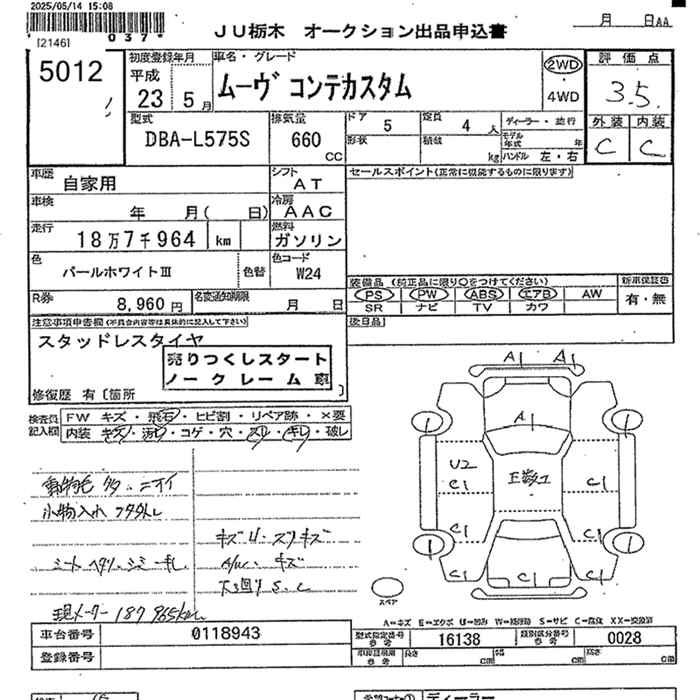 2025/05/14 15:08
[2146]
037*
JU栃木 オークション出品申込書
月 日AA
5012
初度登録年月
平成
23 5月
車名・グレード
ムーヴ コンテカスタム
2WD
4WD
評価点
3.5
外装 内装
C C
型式
DBA-L575S
排気量
660
CC
ドア
5
定員
4 人
形状
積載
kg
ディーラー・並行
モデル年式 年
ハンドル 左・右
車歴
自家用
シフト
AT
セールスポイント(正常に機能するものに限ります)
車検
年 月( 日)
冷房
AAC
走行
18万7千964 km
燃料
ガソリン
色
パールホワイトⅢ
色替
色コード
W24
装備品 (純正品に限り○をつけてください)
PS PW ABS エアB AW
SR ナビ TV カワ
新車保証書
有・無
R券
8,960円
名変通知期限
月 日
後日品
注意事項申告欄(不具合内容等は具体的に記入して下さい)
スタッドレスタイヤ
売りつくしスタート
ノークレーム車
修復歴 有〔箇所 〕
検査員記入欄
FW キズ・飛石・ヒビ割・リペア跡・×要
内装 キズ・汚れ・コゲ・穴・スレ・キレ・破レ
動物毛 多・ニオイ
小物入れ フタ外し
シート ヘタリ・シミ・キレ
キズ U・スリキズ
A/W・キズ
下回り S.C
現メーター 187965km
A1 A1
A1
1 1
U2
C1 C1
C1 C1
C1 C1
1 1
スペア
A=キズ E=エクボ U=凹み W=補修跡 S=サビ C=腐蝕 XX=交換済
車台番号
0118943
型式指定番号
参考
16138
類別区分番号
参考
0028
登録番号
車庫証明用
参考
長さ cm
幅 cm
高さ cm
ディーラー